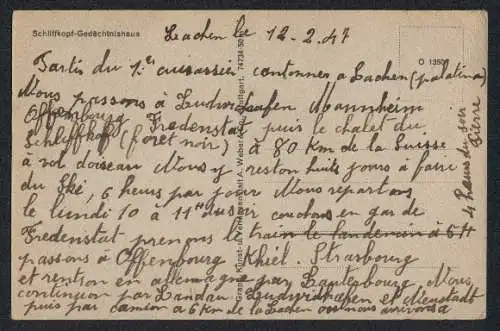 Schliffkopf-Gedächtnishaus
O 1350
Graph. Kunst- u. Verlagsanstalt A. Weber & Co., Stuttgart. 74734-50
Lachen le 12.2.47
Partis du 1er cuirassier cantonner a Lachen (palatinat)
Nous passons à Ludwigshafen Mannheim
Offenbourg Fredenstat puis le chalet du
Schliffkof (foret noir) à 80 km de la Suisse
à vol doiseau Nous y reston huits jours à faire
du Ski, 6 heurs par jour Nous repartons
le lundi 10 a 11H du soir couchons en gar de
Fredenstat prenons le train le lendemain à 6H
passons à Offenbourg Khiel. Strasbourg
et rentron en allemagne par Lauterbourg Nous
continuon par Landau et Neustadt
puis par camion a 6 km de la Lachen ou nous arrivons a
4 heurs du soir
Pierre